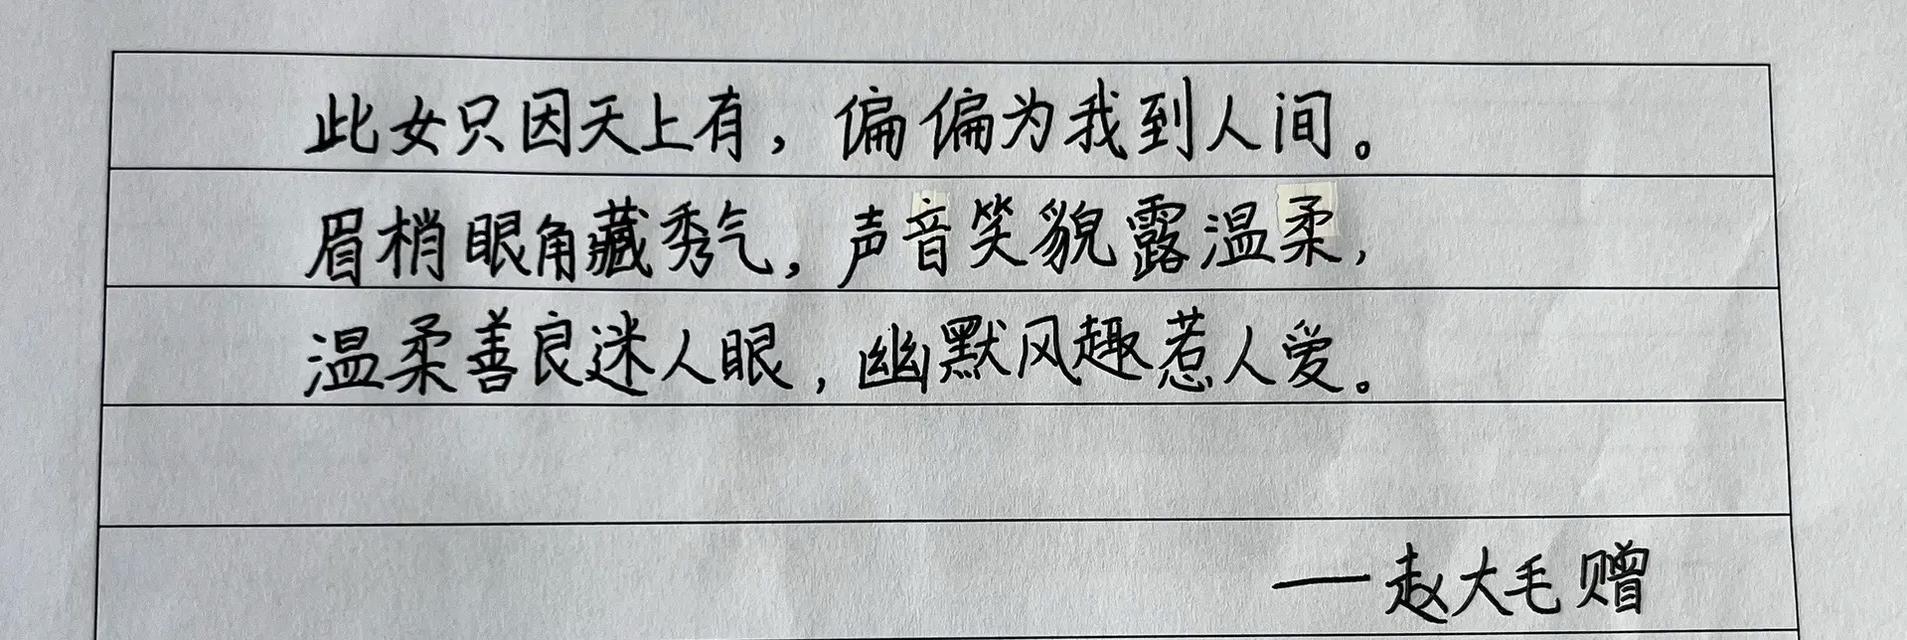 此女只因天上有，偏偏为我到人间。
眉梢眼角藏秀气，声音笑貌露温柔，
温柔善良迷人眼，幽默风趣惹人爱。
——赵大毛赠